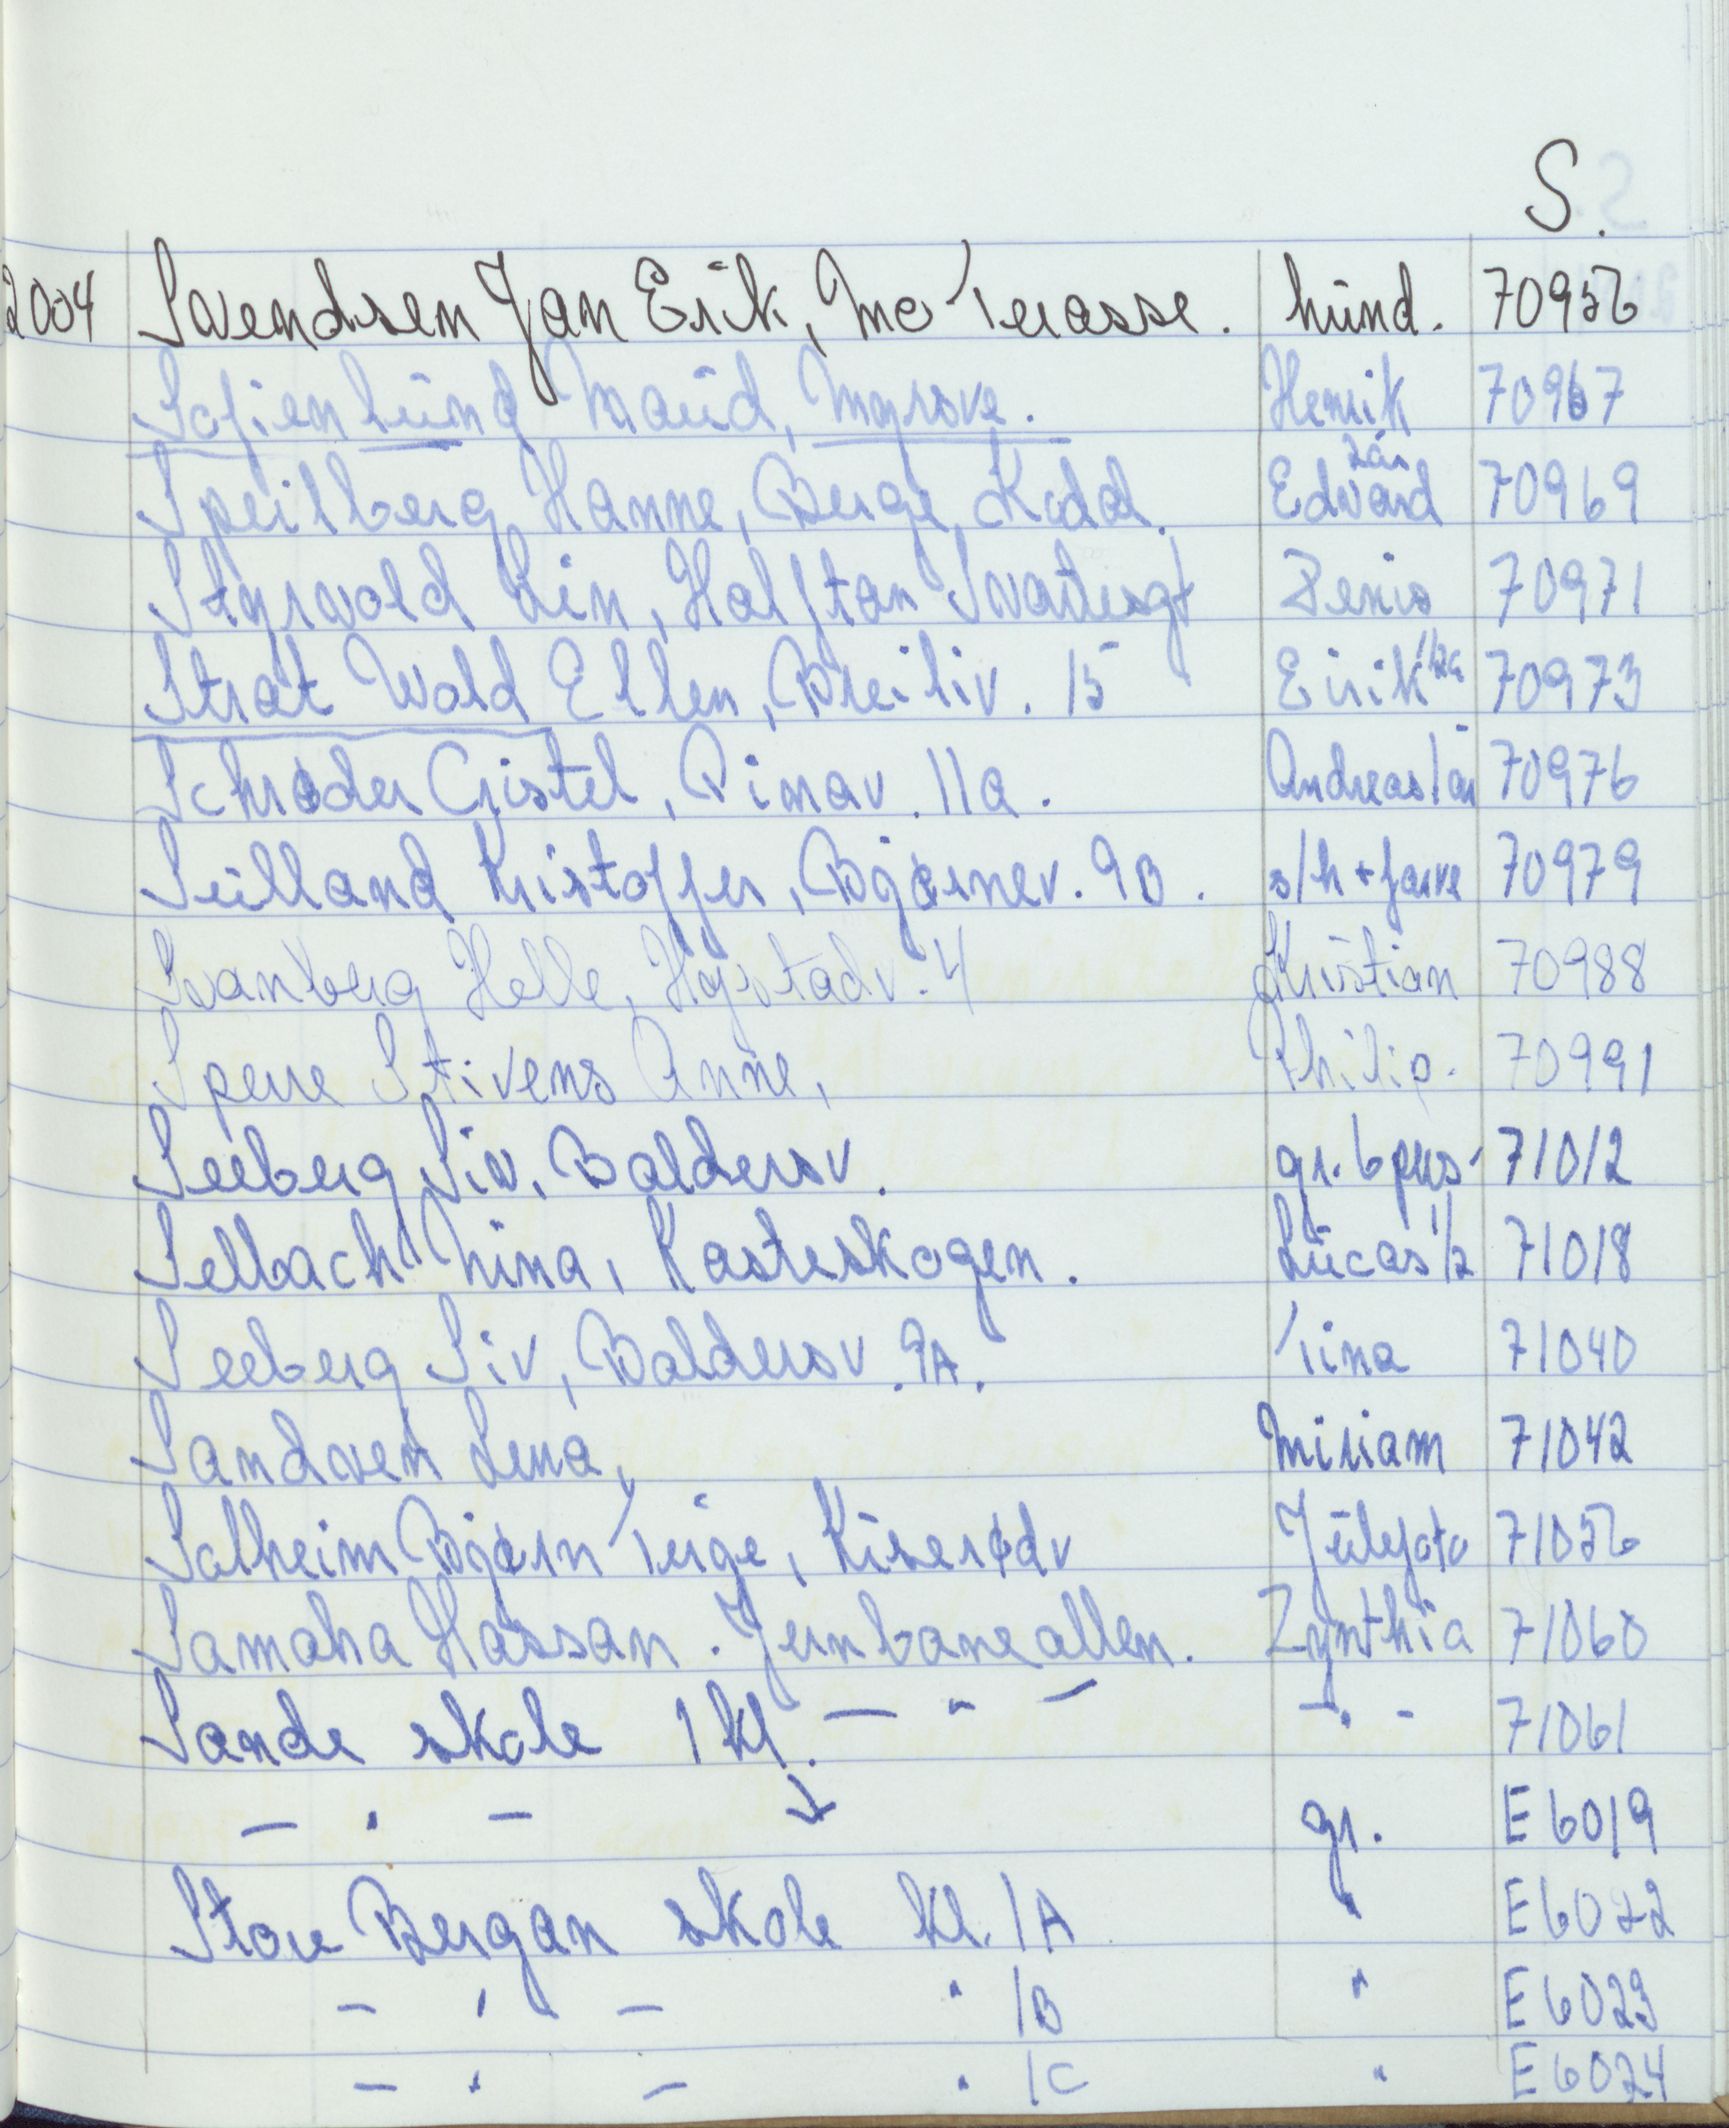 S.
2004 Svendsen Jan Erik, Mo Terasse. hund. 70956
Sofienlund Maud, Myrsve. Henrik 70967
Speilberg Hanne, Berge Kodal. Edvard 2år 70969
Styrvold Lin, Halftan Svartesgt Denis 70971
Strøt Wold Ellen, Breiliv. 15 Eirik 70973
Schrøder Cristel, Dimav. 11a. Andreas 1 år 70976
Seilland Kristoffer, Bjørnev. 9B. s/h + farve 70979
Svanberg Helle, Hystadv. 4 Kristian 70988
Sperre Stivens Anne, Philip. 70991
Seeberg Siv, Baldersv. gr. 6 pers. 71012
Selbach Nina, Kasteskogen. Lucas 1/2 71018
Seeberg Siv, Baldersv. 9A. Tina 71040
Sandven Lena, Miriam 71042
Solheim Bjørn Terje, Kiserødv Julefoto 71056
Samaha Hassan. Jernbaneallen. Zynthia 71060
— " — - " - 71061
Sande skole 1 kl.
— " — ↓ gr. E 6019
Store Bergan skole kl. 1A " E 6022
— " — " 1B " E 6023
— " — " 1C " E 6024